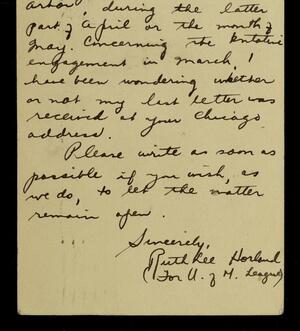 Arbor, during the latter
part of April or the month of
May. Concerning the tentative
engagement in March, I
have been wondering whether
or not my last letter was
received at your Chicago
address.
Please write as soon as
possible if you wish, as
we do, to let the matter
remain open.
Sincerely,
Ruth Lee Horland
(For U. of M. League)